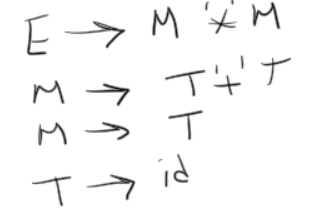 E → M '*' M
M → T '+' T
M → T
T → id